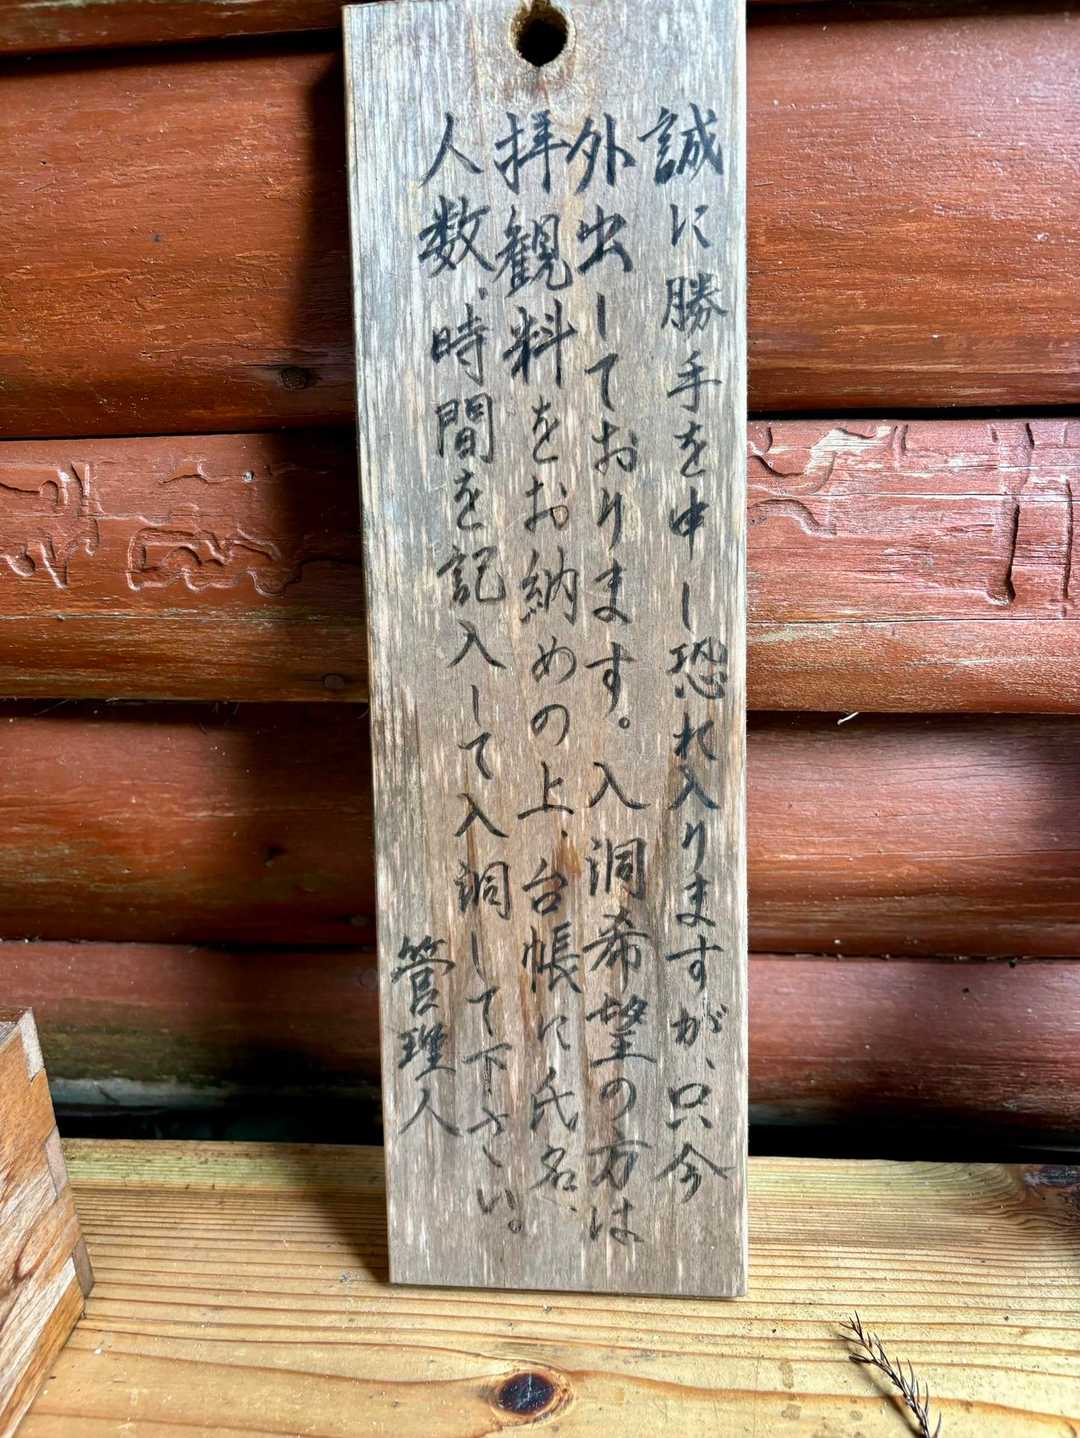 誠に勝手を申し恐れ入りますが、只今
外出しております。入洞希望の方は
拝観料をお納めの上、台帳に氏名、
人数、時間を記入して入洞して下さい。
管理人